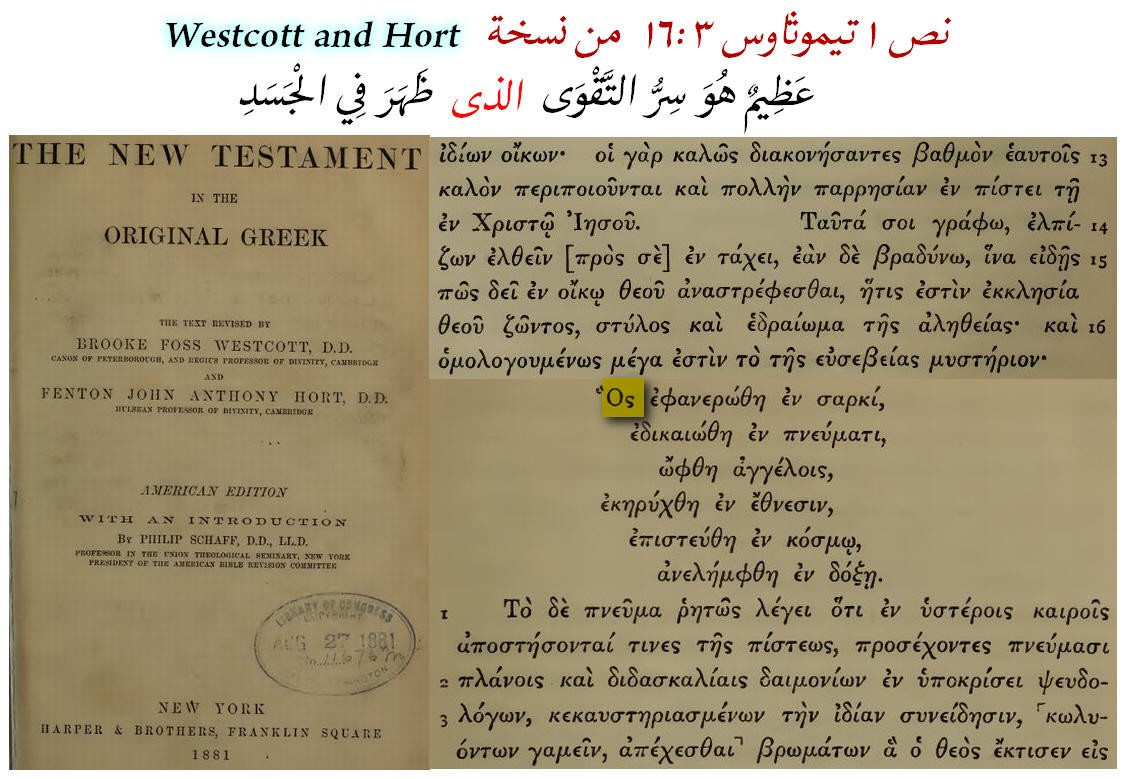 نص ١ تيموثاوس ٣ :١٦ من نسخة Westcott and Hort
عَظِيمٌ هُوَ سِرُّ التَّقْوَى الذى ظَهَرَ فِي الْجَسَدِ
THE NEW TESTAMENT
IN THE
ORIGINAL GREEK
THE TEXT REVISED BY
BROOKE FOSS WESTCOTT, D.D.
CANON OF PETERBOROUGH, AND REGIUS PROFESSOR OF DIVINITY, CAMBRIDGE
AND
FENTON JOHN ANTHONY HORT, D.D.
HULSEAN PROFESSOR OF DIVINITY, CAMBRIDGE
AMERICAN EDITION
WITH AN INTRODUCTION
By PHILIP SCHAFF, D.D., LL.D.
PROFESSOR IN THE UNION THEOLOGICAL SEMINARY, NEW YORK
PRESIDENT OF THE AMERICAN BIBLE REVISION COMMITTEE
LIBRARY OF CONGRESS
COPYRIGHT
AUG 27 1881
NEW YORK
HARPER & BROTHERS, FRANKLIN SQUARE
1881
ἰδίων οἴκων· οἱ γὰρ καλῶς διακονήσαντες βαθμὸν ἑαυτοῖς 13
καλὸν περιποιοῦνται καὶ πολλὴν παρρησίαν ἐν πίστει τῇ
ἐν Χριστῷ Ἰησοῦ. Ταῦτά σοι γράφω, ἐλπί- 14
ζων ἐλθεῖν [πρὸς σὲ] ἐν τάχει, ἐὰν δὲ βραδύνω, ἵνα εἰδῇς 15
πῶς δεῖ ἐν οἴκῳ θεοῦ ἀναστρέφεσθαι, ἥτις ἐστὶν ἐκκλησία
θεοῦ ζῶντος, στύλος καὶ ἑδραίωμα τῆς ἀληθείας· καὶ 16
ὁμολογουμένως μέγα ἐστὶν τὸ τῆς εὐσεβείας μυστήριον·
Ὃς ἐφανερώθη ἐν σαρκί,
ἐδικαιώθη ἐν πνεύματι,
ὤφθη ἀγγέλοις,
ἐκηρύχθη ἐν ἔθνεσιν,
ἐπιστεύθη ἐν κόσμῳ,
ἀνελήμφθη ἐν δόξῃ.
1 Τὸ δὲ πνεῦμα ῥητῶς λέγει ὅτι ἐν ὑστέροις καιροῖς
ἀποστήσονταί τινες τῆς πίστεως, προσέχοντες πνεύμασι
2 πλάνοις καὶ διδασκαλίαις δαιμονίων ἐν ὑποκρίσει ψευδο-
3 λόγων, κεκαυστηριασμένων τὴν ἰδίαν συνείδησιν, ⌜κωλυ-
όντων γαμεῖν, ἀπέχεσθαι⌝ βρωμάτων ἃ ὁ θεὸς ἔκτισεν εἰς